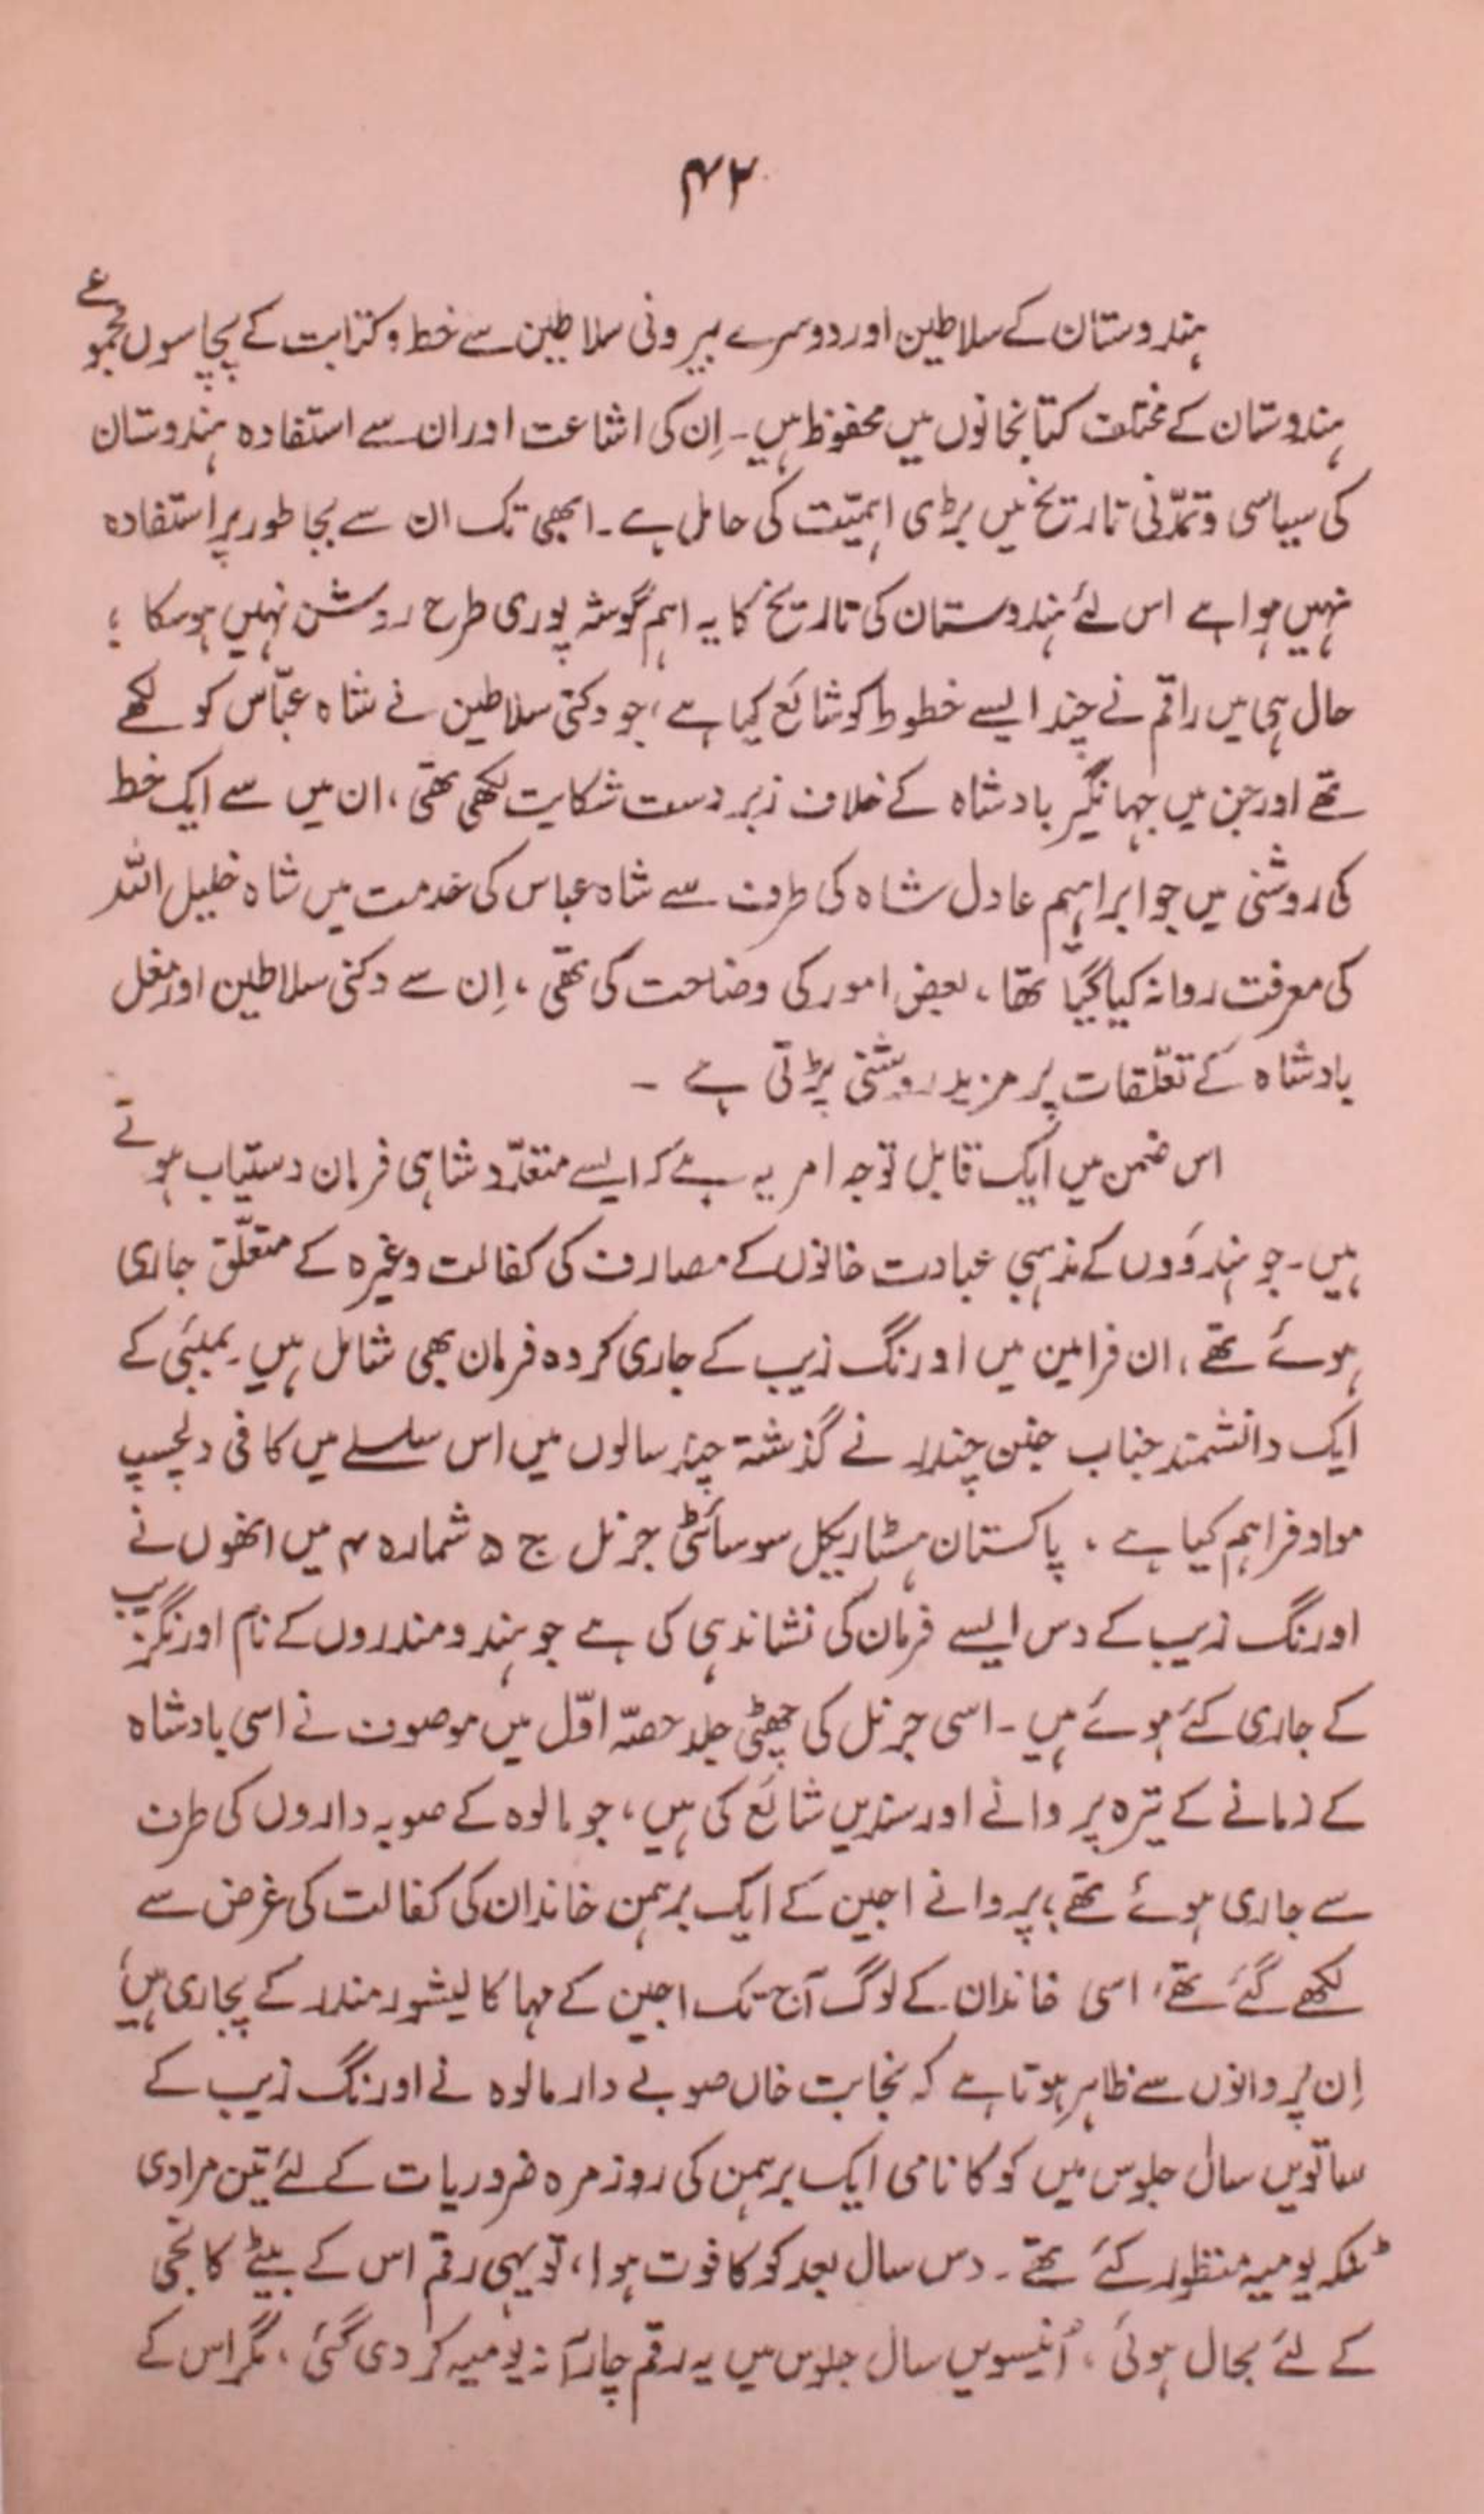 ۴۲
ہندوستان کے سلاطین اور دوسرے بیرونی سلاطین سے خط و کتابت کے پچاسوں مجموعے
ہندوستان کے مختلف کتابخانوں میں محفوظ ہیں۔ اِن کی اشاعت اور ان سے استفادہ ہندوستان
کی سیاسی و تمدّنی تاریخ میں بڑی اہمیّت کی حامل ہے۔ ابھی تک ان سے بجا طور پر استفادہ
نہیں ہوا ہے اس لئے ہندوستان کی تاریخ کا یہ اہم گوشہ پوری طرح روشن نہیں ہو سکا ؛
حال ہی میں راقم نے چند ایسے خطوط کو شائع کیا ہے، جو دکنی سلاطین نے شاہ عبّاس کو لکھے
تھے اور جن میں جہانگیر بادشاہ کے خلاف زبردست شکایت لکھی تھی، ان میں سے ایک خط
کی روشنی میں جو ابراہیم عادل شاہ کی طرف سے شاہ عباس کی خدمت میں شاہ خلیل اللہ
کی معرفت روانہ کیا گیا تھا، بعض امور کی وضاحت کی تھی، اِن سے دکنی سلاطین اور مغل
بادشاہ کے تعلّقات پر مزید روشنی پڑتی ہے ۔
اس ضمن میں ایک قابل توجہ امر یہ ہے کہ ایسے متعدّد شاہی فرمان دستیاب ہوتے
ہیں۔ جو ہندوؤں کے مذہبی عبادت خانوں کے مصارف کی کفالت وغیرہ کے متعلّق جاری
ہوئے تھے، ان فرامین میں اورنگ زیب کے جاری کردہ فرمان بھی شامل ہیں۔ بمبئی کے
ایک دانشمند جناب جنن چندر نے گذشتہ چند سالوں میں اس سلسلے میں کافی دلچسپ
مواد فراہم کیا ہے ، پاکستان ہسٹاریکل سوسائٹی جرنل ج ۵ شمارہ ۴ میں انھوں نے
اورنگ زیب کے دس ایسے فرمان کی نشاندہی کی ہے جو ہندو مندروں کے نام اورنگزیب
کے جاری کئے ہوئے ہیں۔ اسی جرنل کی چھٹی جلد حصّہ اوّل میں موصوف نے اسی بادشاہ
کے زمانے کے تیرہ پروانے اور سندیں شائع کی ہیں، جو مالوہ کے صوبہ داروں کی طرف
سے جاری ہوئے تھے، پروانے اجین کے ایک برہمن خاندان کی کفالت کی غرض سے
لکھے گئے تھے، اسی خاندان کے لوگ آج تک اجین کے مہاکالیشور مندر کے پجاری ہیں،
اِن پروانوں سے ظاہر ہوتا ہے کہ نجابت خاں صوبے دار مالوہ نے اورنگ زیب کے
ساتویں سال جلوس میں کوکا نامی ایک برہمن کی روزمرہ ضروریات کے لئے تین مرادی
ٹنکہ یومیہ منظور کئے تھے۔ دس سال بعد کوکا فوت ہوا، تو یہی رقم اس کے بیٹے کانجی
کے لئے بحال ہوئی، اُنیسویں سال جلوس میں یہ رقم چار آنہ یومیہ کر دی گئی، مگر اس کے